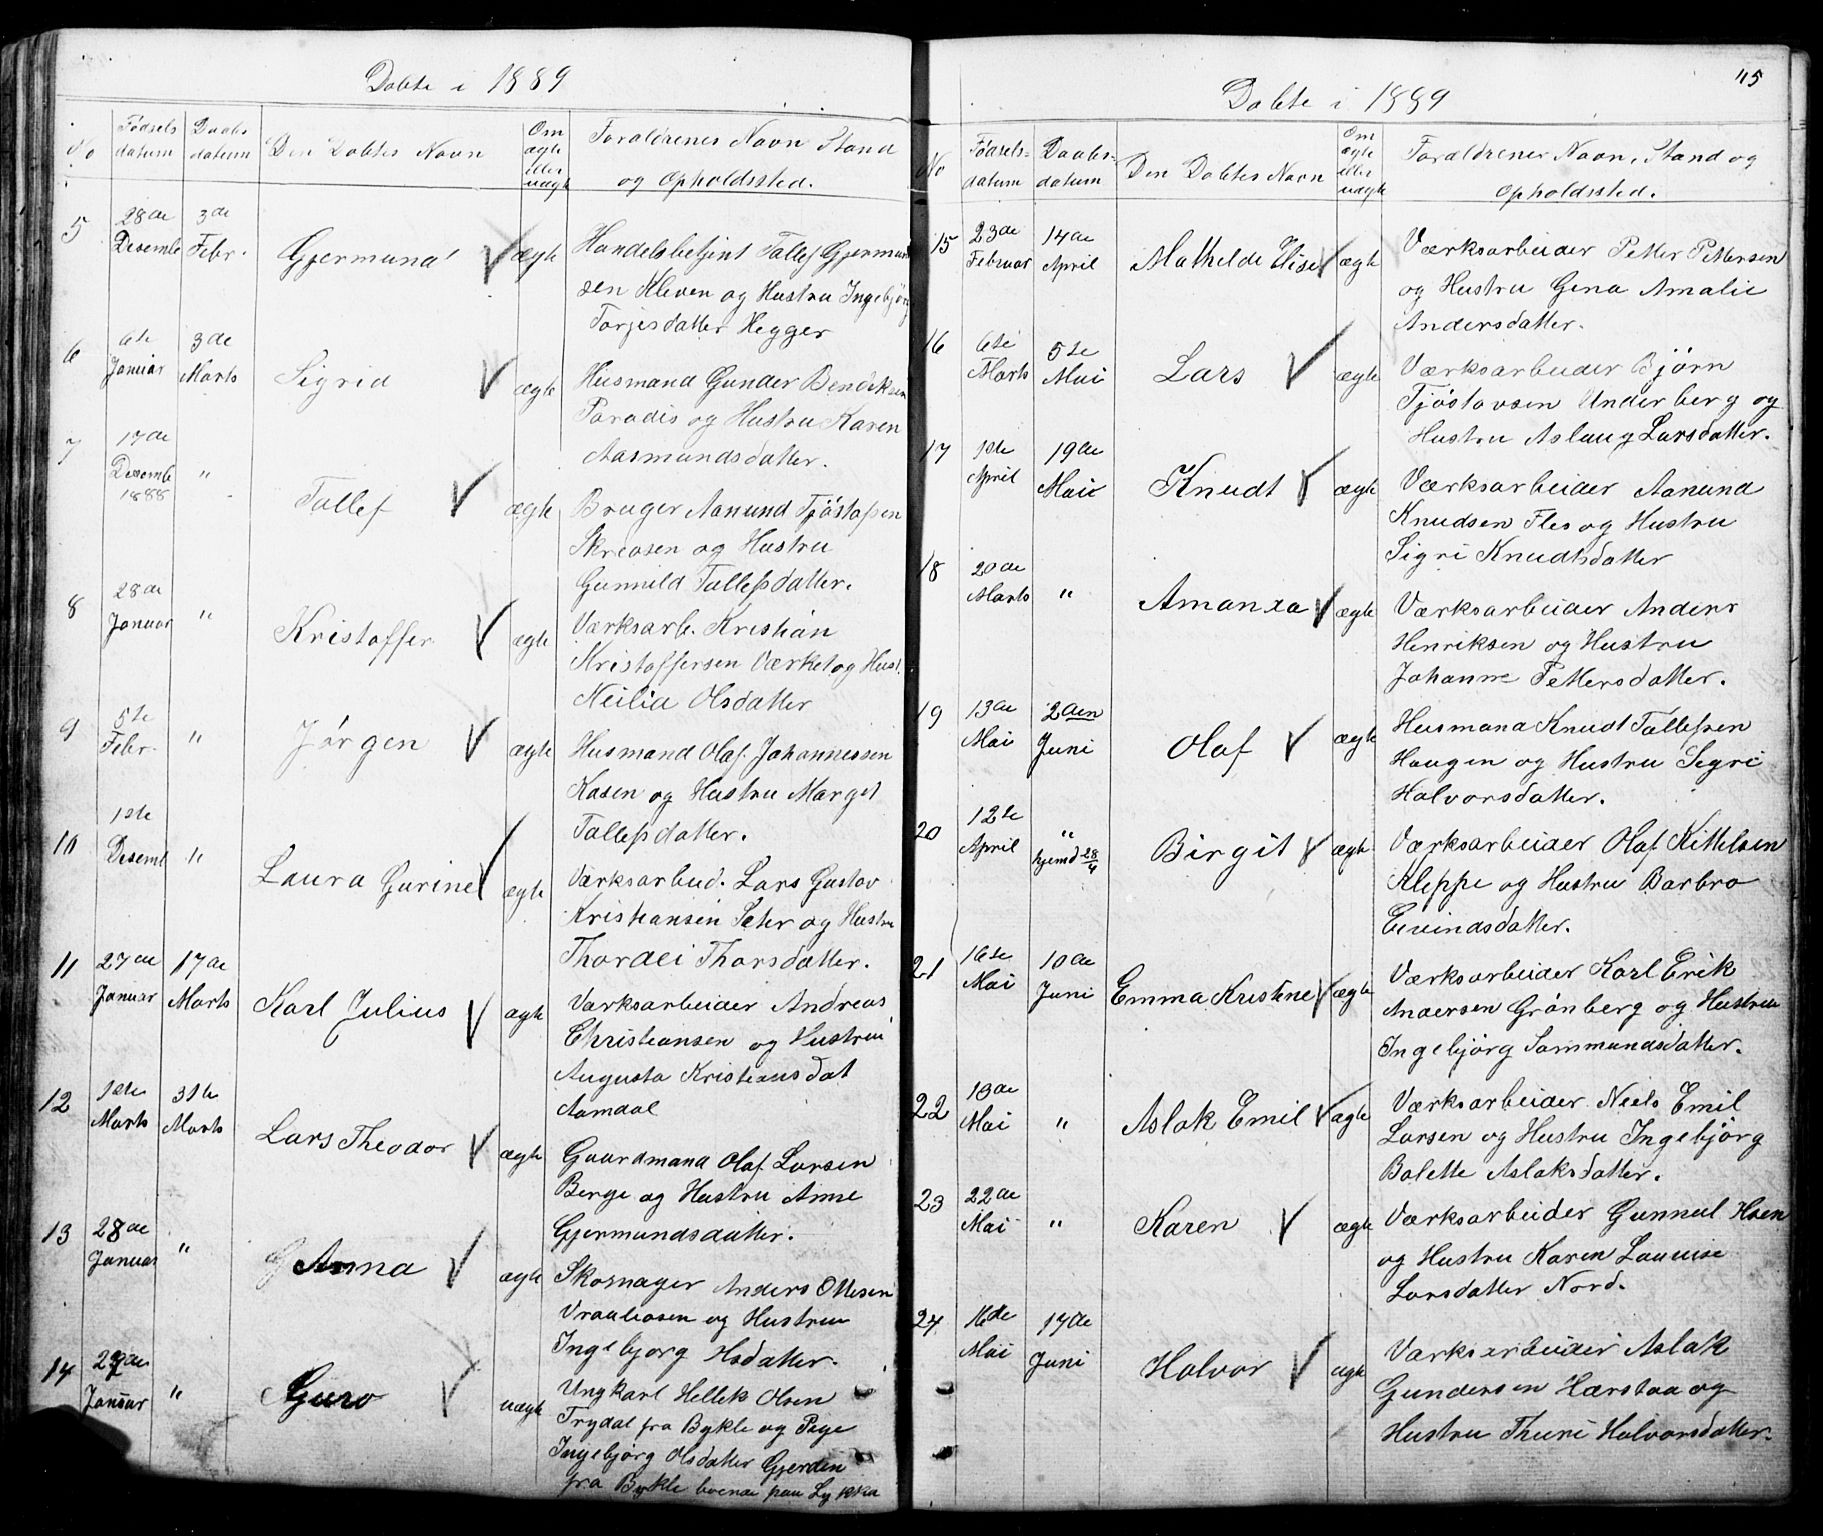 Døbte i 1889
No
Fødsels datum
Daabs datum
Den Døbtes Navn
Om ægte eller uægte
Forældrenes Navn Stand
og Opholdssted.
5 28de Desembe 3de Febr. Gjermund ægte Handelsbetjent Tallef Gjermund
sen Kleven og Hustru Ingebjørg
Torjesdatter Hegger
6 6te Januar 3de Marts Sigrid ægte Husmand Gunder Bendiksen
Paradis og Hustru Karen
Aasmundsdatter.
7 17de Desembe 1888 " Tallef ægte Bruger Aanund Tjøstafsen
Skreosen og Hustru
Gunnild Tallefsdatter.
8 28de Januar " Kristoffer ægte Værksarb. Kristian
Kristoffersen Værket og Hust.
Neilia Olsdatter
9 5te Febr. " Jørgen ægte Husmand Olaf Johannessen
Kasen og Hustru Marget
Tallefsdatter.
10 1ste Desemb " Laura Gurine ægte Værksarbeid. Lars Gustav
Kristiansen Seter og Hustru
Thordei Thorsdatter.
11 27de Januar 17de Marts Karl Julius ægte Værksarbeider Andreas
Christiansen og Hustru
Augusta Kristiansdat
Aamdal
12 1ste Marts 31te Marts Lars Theodor ægte Gaardmand Olaf Larsen
Berge og Hustru Anne
Gjermundsdatter.
13 28de Januar " Anna ægte Skomager Anders Ottesen
Vraaliosen og Hustru
Ingebjørg Hsdatter.
14 29de Januar " Guro uægte Ungkarl Hellek Olsen
Trydal fra Bykle og Pige
Ingebjørg Olsdatter Gjerden
fra Bykle boende paa Lykka
45
Døbte i 1889
No
Fødsels- datum
Daabs- datum
Den Døbtes Navn
Om ægte eller uægte
Forældrenes Navn, Stand og
Opholdssted.
15 23de Februar 14de April Mathelde Elise ægte Værksarbeider Petter Pettersen
og Hustru Gina Amalie
Andersdatter.
16 6te Marts 5te Mai Lars ægte Værksarbeider Bjørn
Tjøstavsen Underberg og
Hustru Aslaug Larsdatter.
17 1ste April 19de Mai Knudt ægte Værksarbeider Aanund
Knudsen Fles og Hustru
Sigri Knudtsdatter
18 20de Marts " Amanda ægte Værksarbeider Anders
Henriksen og Hustru
Johanne Pettersdatter.
19 13de Mai 2den Juni Olaf ægte Husmand Knudt Tallefsen
Haugen og Hustru Sigri
Halvorsdatter.
20 12te April " hjemd 28/4 Birgit ægte Værksarbeider Olaf Kittelsen
Kleppe og Hustru Barbro
Eivindsdatter.
21 16te Mai 10de Juni Emma Kristine ægte Værksarbeider Karl Erik
Andersen Grønberg og Hustru
Ingebjørg Sammundsdatter.
22 13de Mai " Aslak Emil ægte Værksarbeider Niels Emil
Larsen og Hustru Ingebjørg
Bolette Aslaksdatter.
23 22de Mai " Karen ægte Værksarbeider Gunnul Hoen
og Hustru Karen Lauvise
Larsdatter Nord.
24 16de Mai 17de Juni Halvor ægte Værksarbeider Aslak
Gundersen Hærstaa og
Hustru Thuri Halvorsdatter.